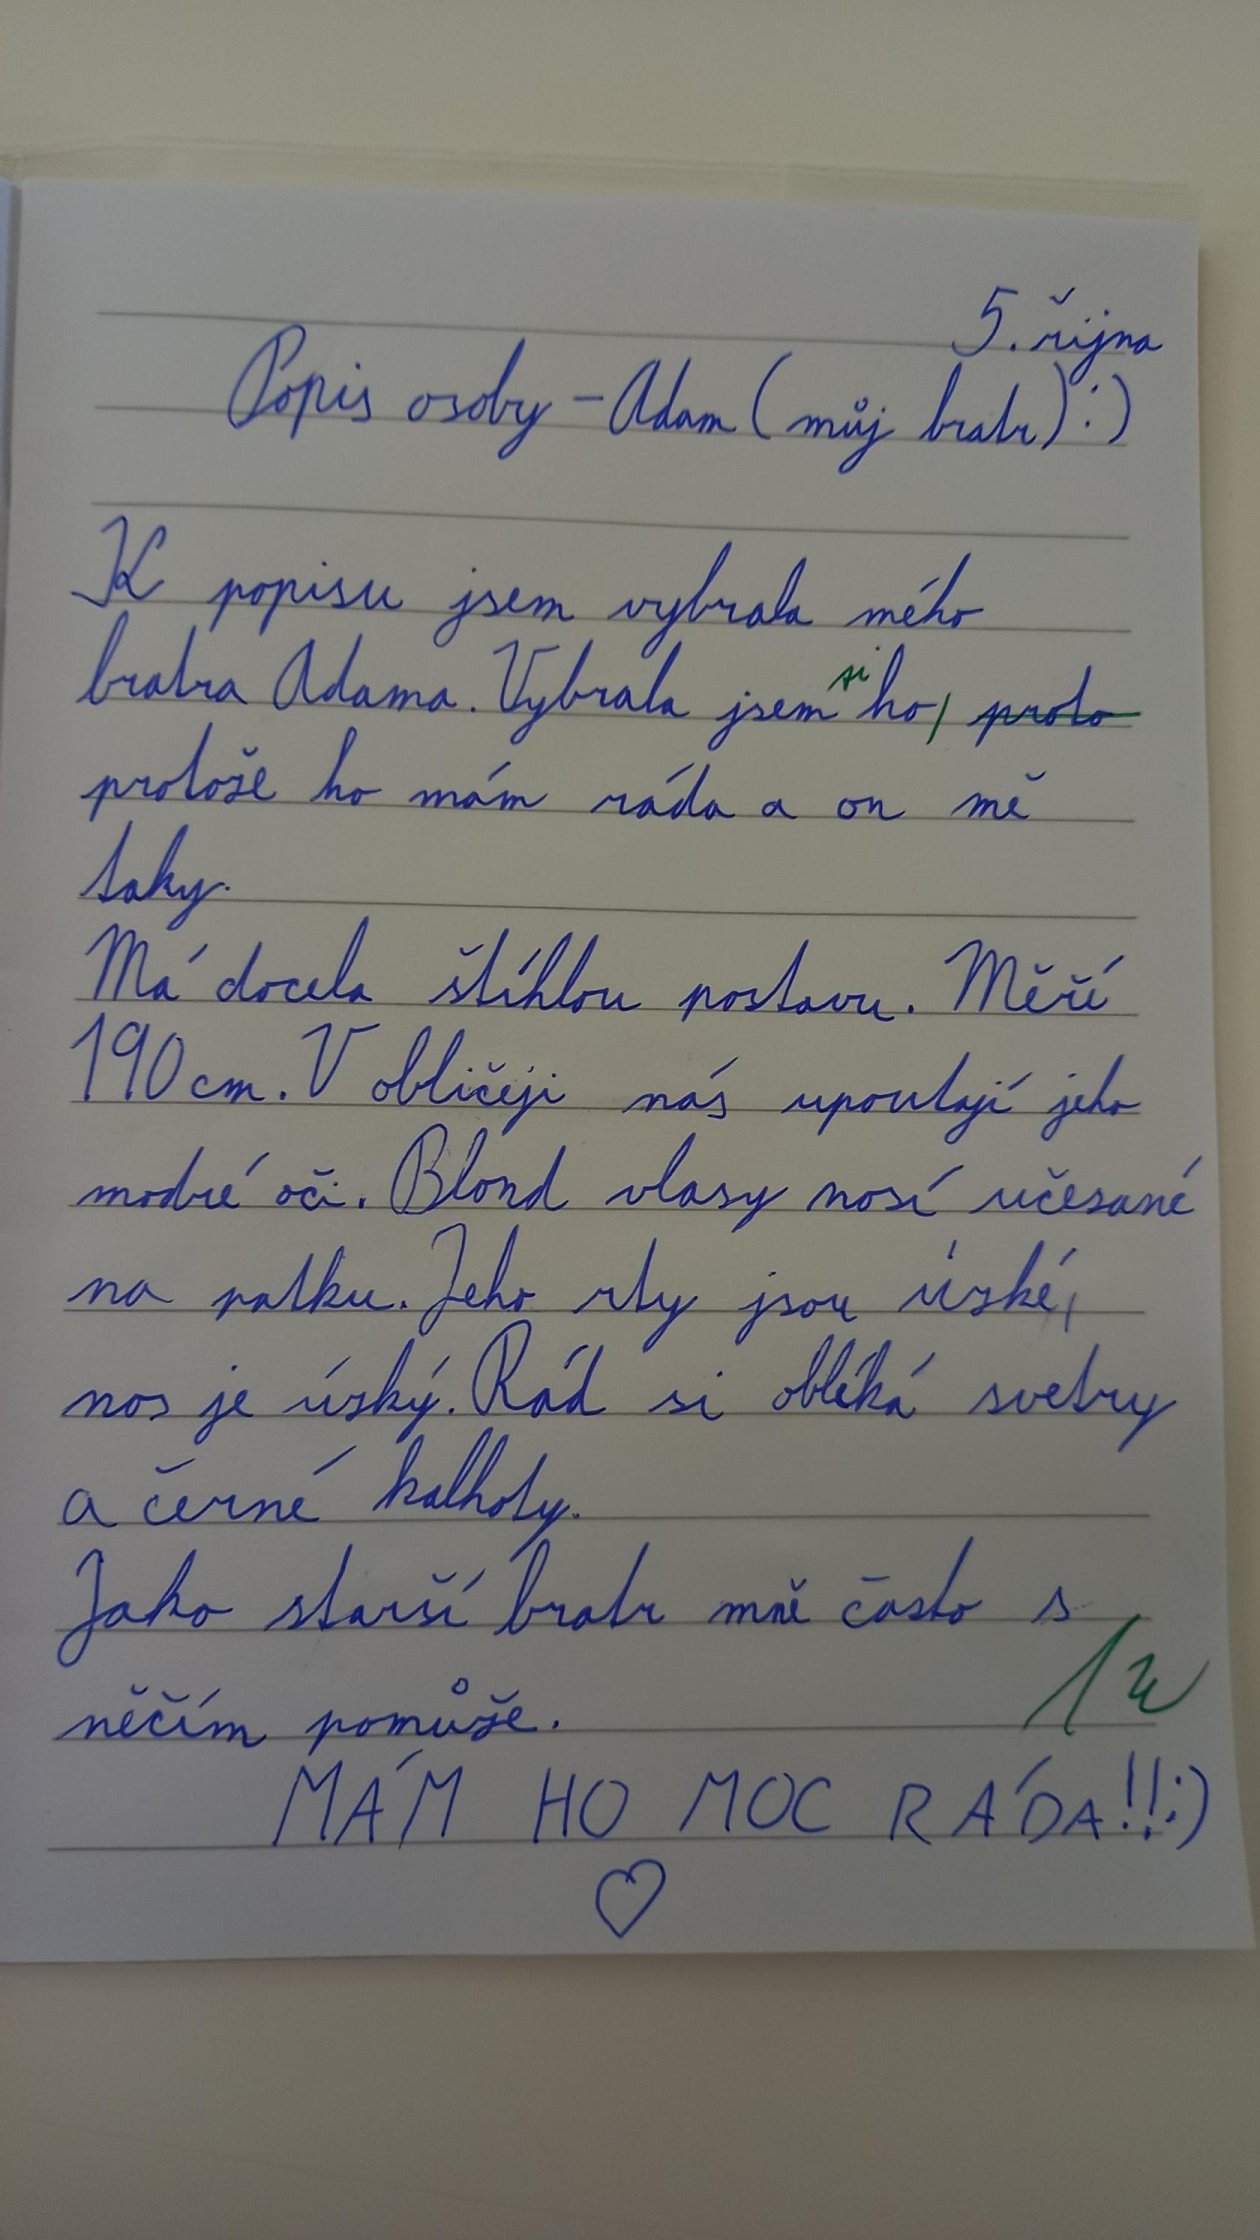 5. října
Popis osoby - Adam (můj bratr) :)
K popisu jsem vybrala mého
bratra Adama. Vybrala jsem si ho, proto
protože ho mám ráda a on mě
taky.
Má docela štíhlou postavu. Měří
190 cm. V obličeji nás upoutají jeho
modré oči. Blond vlasy nosí učesané
na patku. Jeho rty jsou úzké,
nos je úzký. Rád si obléká svetry
a černé kalhoty.
Jako starší bratr mně často s
něčím pomůže.
MÁM HO MOC RÁDA!! :)